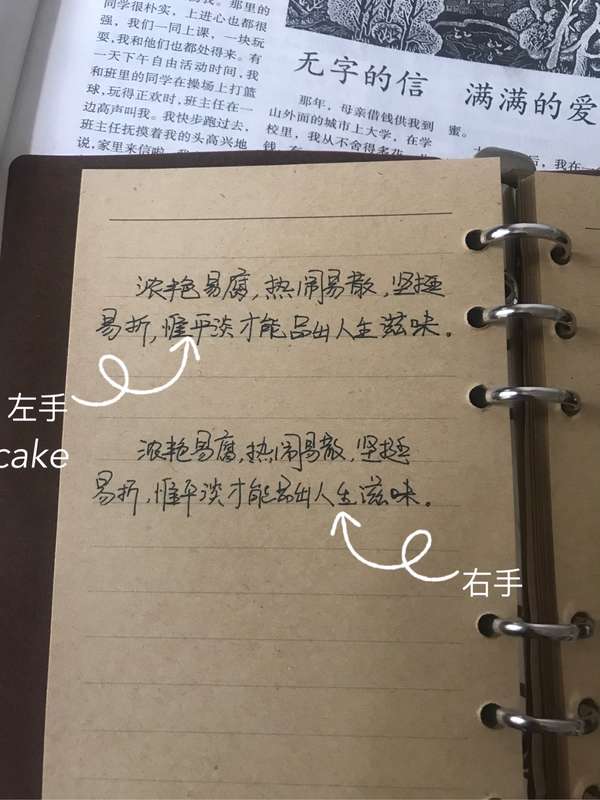 同学很朴实，上进心也都很
强，我们一同上课，一块玩
耍，我和他们也都处得来。有
一天下午自由活动时间，我
和班里的同学在操场上打篮
球，玩得正欢时，班主任在一
边高声叫我。我快步跑过去，
班主任抚摸着我的头高兴地
说，家里来信啦
无字的信 满满的爱
那年，母亲借钱供我到
山外面的城市上大学，在学
校里，我从不舍得多花
蜜。
后，我在一
浓艳易腐，热闹易散，坚挺
易折，惟平淡才能品出人生滋味。
左手
cake
浓艳易腐，热闹易散，坚挺
易折，惟平淡才能品出人生滋味。
右手